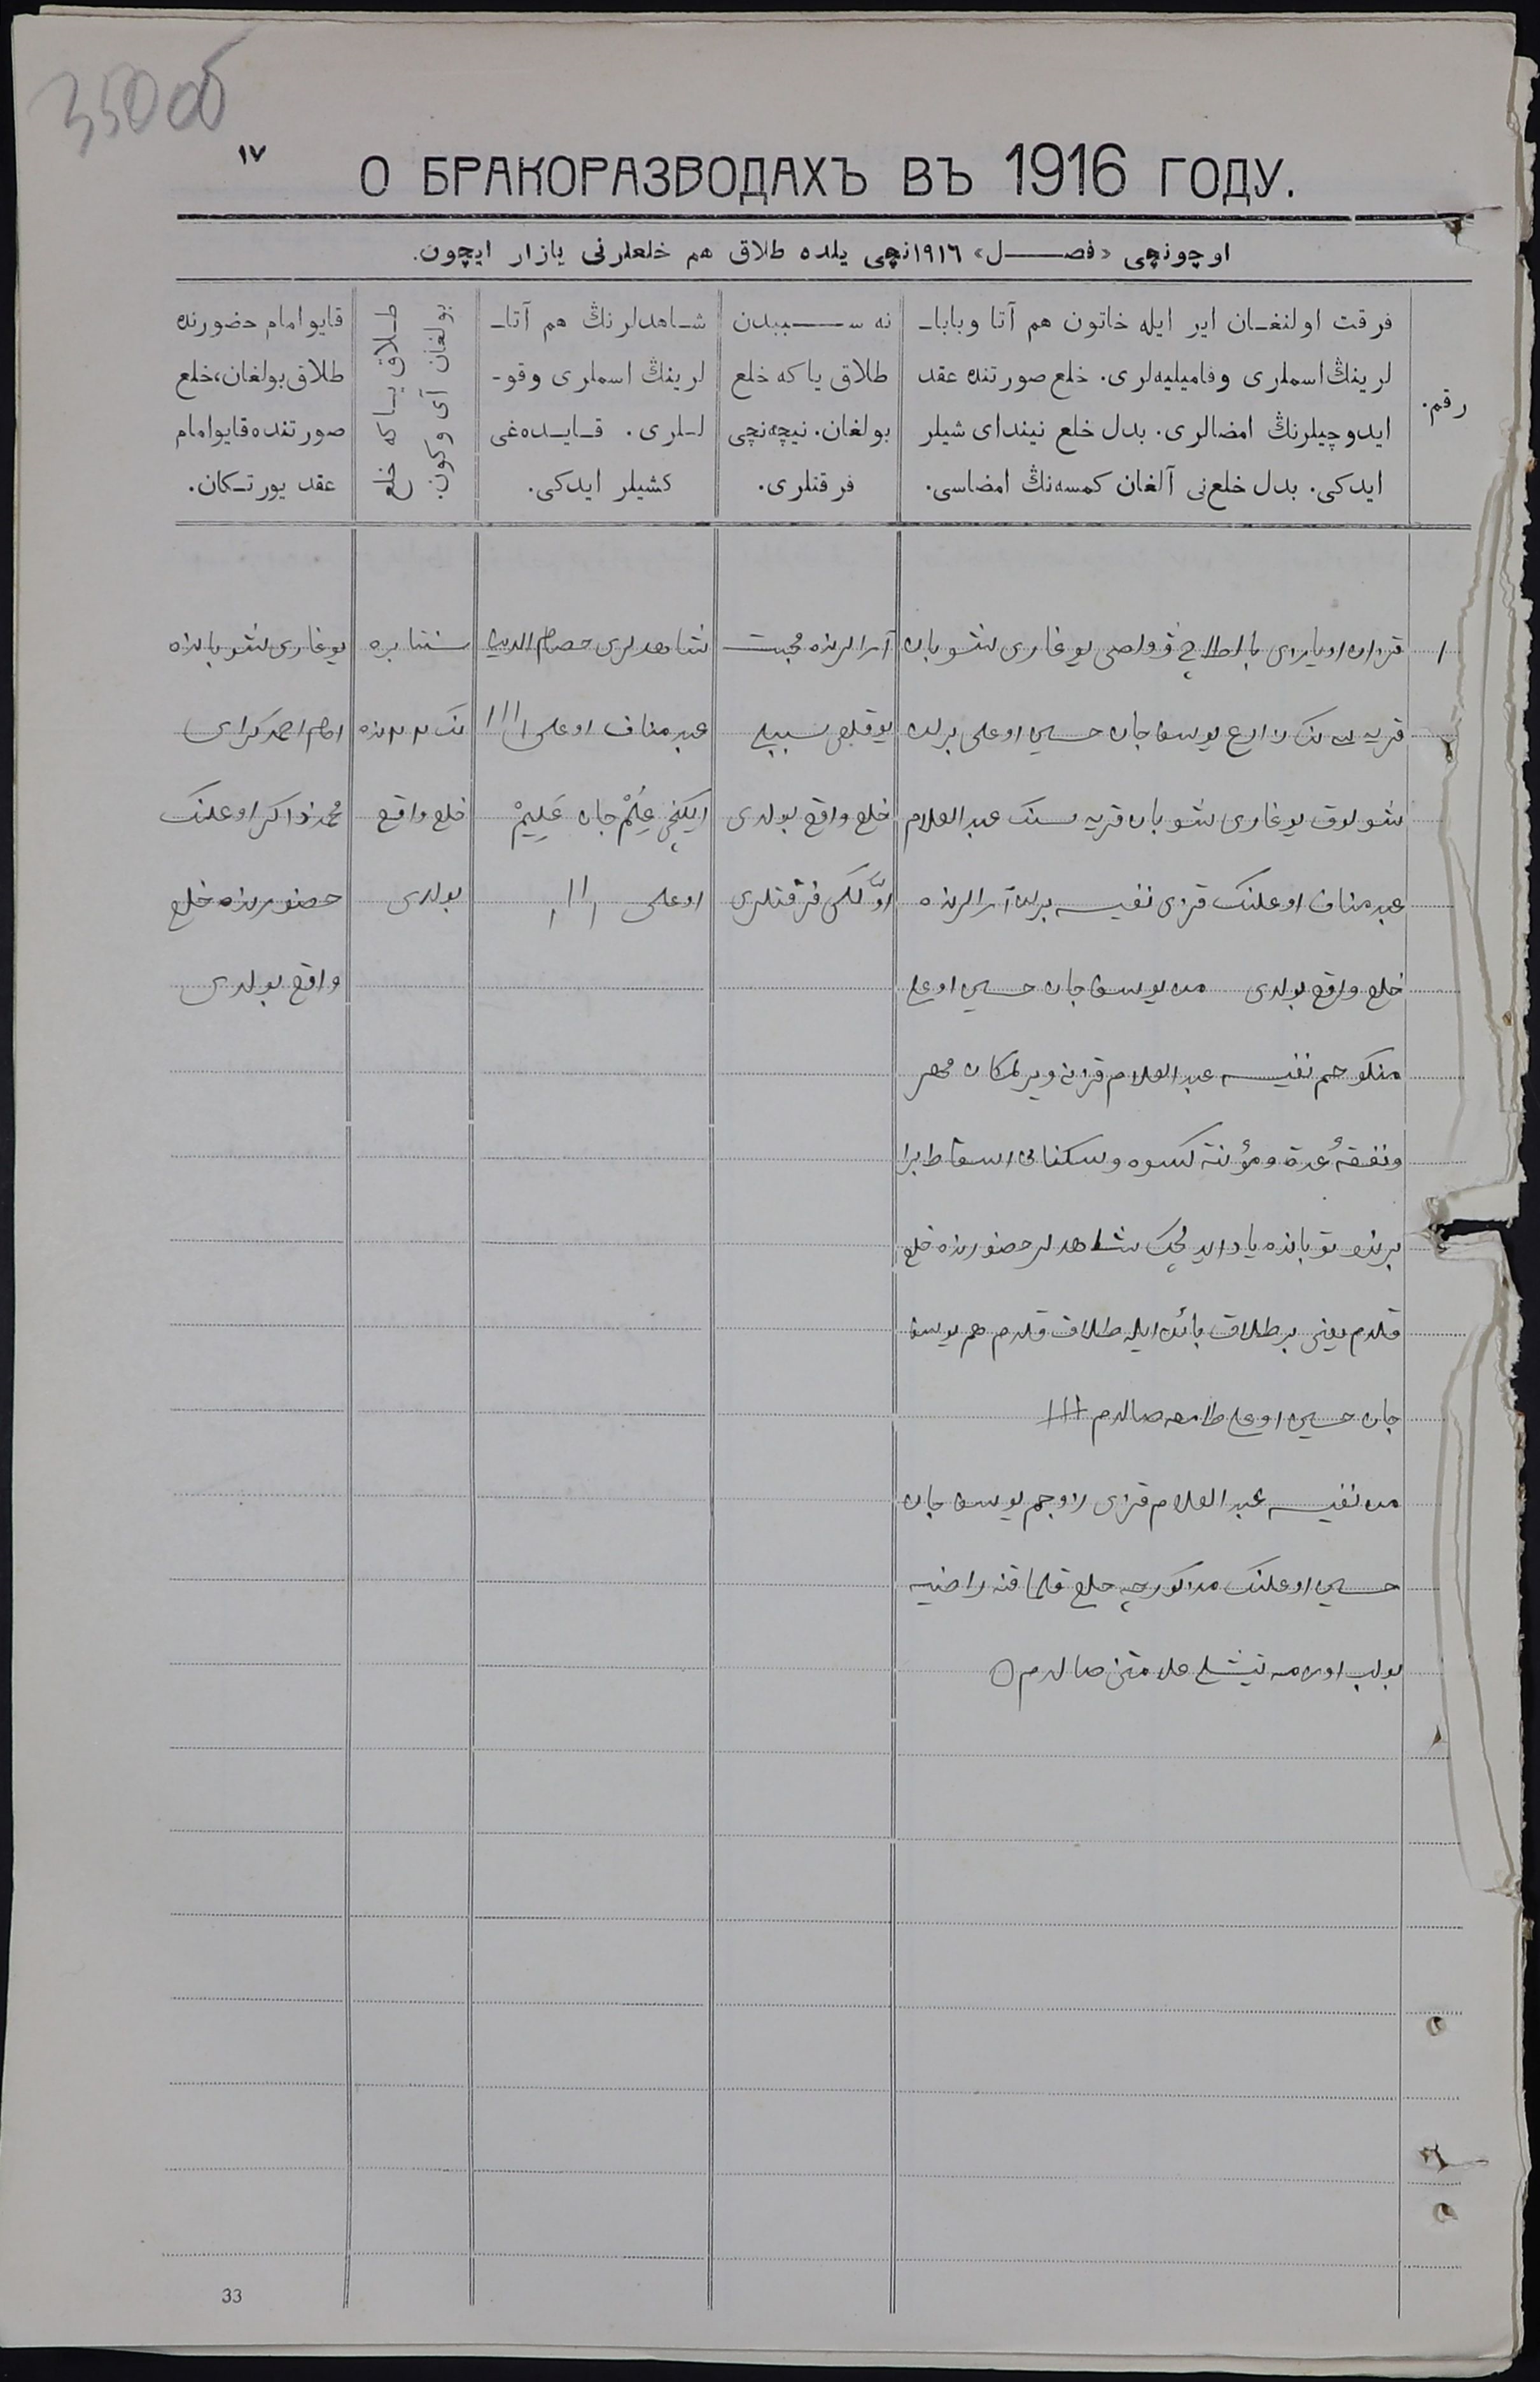 350об
١٧
О БРАКОРАЗВОДАХЪ ВЪ 1916 ГОДУ.
اوچونچی «فصـــل» ١٩١٦نچی یلده طلاق هم خلعلرنی یازار ایچون.
رقم.
فرقت اولنغـان ایر ایله خاتون هم آتا وبابا۔
لرینڭ اسملری وفامیلیه‌لری. خلع صورتنده عقد
ایدوچیلرنڭ امضالری. بدل خلع نیندای شیلر
ایدکی. بدل خلع‌نی آلغان کمسه‌نڭ امضاسی.
نه ســـببدن
طلاق یاکه خلع
بولغان. نیچه‌نچی
فرقتلری.
شـاهدلرنڭ هم آتا۔
لرینڭ اسملری وقو۔
لـلری. قـایـده‌غی
کشیلر ایدکی.
طـلاق یـاکه خلع
بولغان آی وکون.
قایو امام حضورنده
طلاق بولغان، خلع
صورتنده قایو امام
عقد یورتـکان.
١
قزان اویازی بالطاچ ڤولصی یوغاری شوبان
قریه سی نک زارع یوسف جان حسین اوغلی برلن
شولوق یوغاری شوبان قریه سنک عبد العلام
عبد مناف اوغلنک قزی نفیسه برلن آرالرنده
خلع واقع بولدی من یوسف جان حسین اوغلی
منکوحم نفیسه عبد العلام قزینه ویرلمکان مهر
ونفقهٔ عدة ومؤنت کسوه وسکنا نی اسقاط برا
برنده توبانده یاد ایدلچک شاهدلر حضورنده خلع
قلدم یعنی بر طلاق بائن ایله طلاق قلدم هم یوسف
جان حسین اوغلی طامغه صالدم ١١١
من نفیسه عبد العلام قزی زاوجم یوسف جان
حسین اوغلنک مذکورچه خلع قلماقنه راضیه
بولب اوزمه تیشلی علامتنی صالدم O
آرالرنده محبت
یوقلقی سببلی
خلع واقع بولدی
اوّلکی فرقتلری
شاهدلری حصام الدین
عبد مناف اوغلی ١١١
ایکنچی عِلمْ جان عَلِیمْ
اوغلی ١١١
سنتابره
نک ٢٢ نده
خلع واقع
بولدی
یوغاری شوبانده
امام احمد کرای
محمد ذاکر اوغلنک
حضورنده خلع
واقع بولدی
33